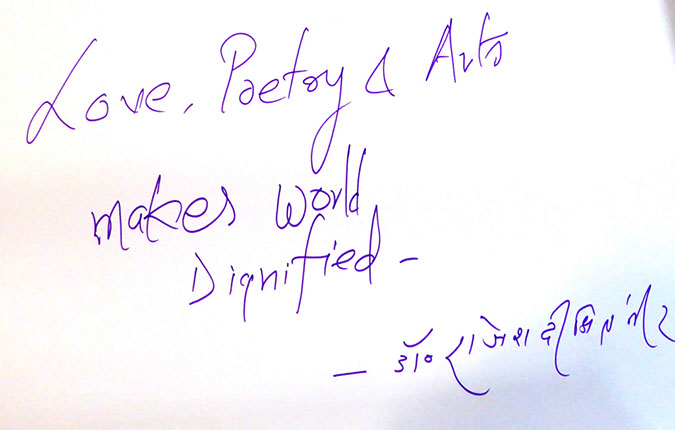 Love, Poetry & Arts
makes World
Dignified -
- डॉ॰ राजेश दीक्षित नीर